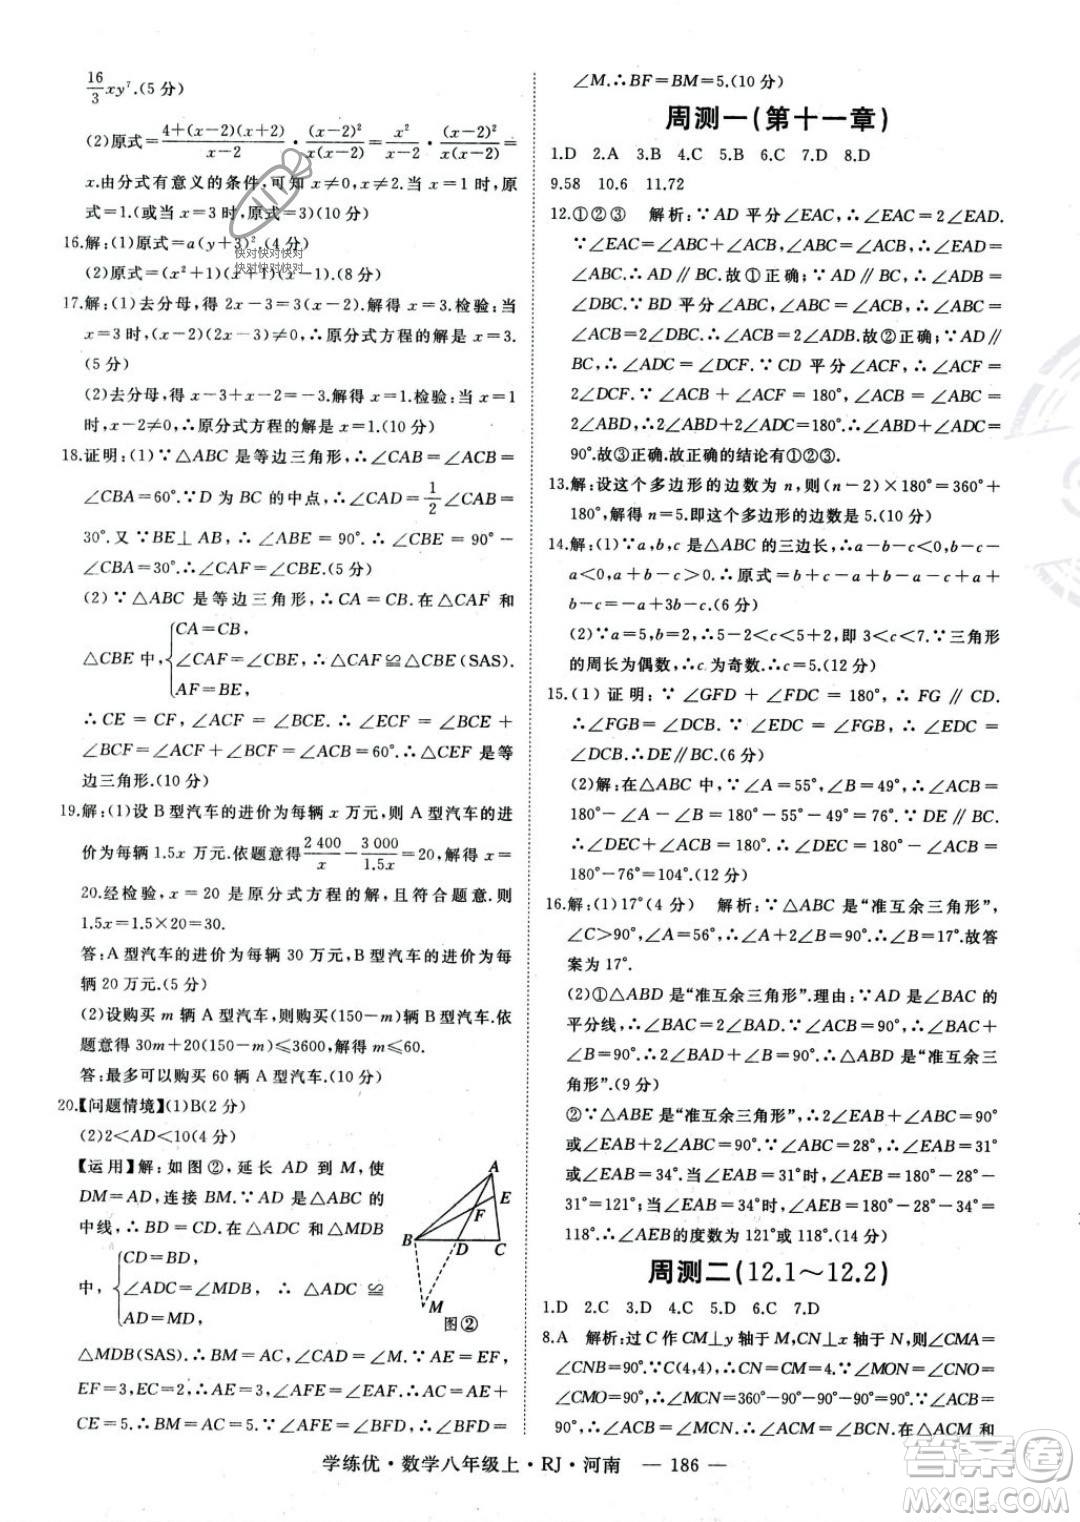 16/3 xy⁷.(5 分)
(2)原式=4+(x-2)(x+2)/x-2 · (x-2)²/x(x-2) = x²/x-2 · (x-2)²/x(x-2) =
x.由分式有意义的条件,可知 x≠0,x≠2.当 x=1 时,原
式=1.(或当 x=3 时,原式=3)(10 分)
16.解:(1)原式=a(y+3)².(4 分)
(2)原式=(x²+1)(x+1)(x-1).(8 分)
17.解:(1)去分母,得 2x-3=3(x-2).解得 x=3.检验:当
x=3 时,(x-2)(2x-3)≠0,∴原分式方程的解是 x=3.
(5 分)
(2)去分母,得 x-3+x-2=-3.解得 x=1.检验:当 x=1
时,x-2≠0,∴原分式方程的解是 x=1.(10 分)
18.证明:(1)∵△ABC 是等边三角形,∴∠CAB=∠ACB
=∠CBA=60°.∵D 为 BC 的中点,∴∠CAD=1/2∠CAB=
30°.又∵BE⊥AB,∴∠ABE=90°.∴∠CBE=90°-
∠CBA=30°.∴∠CAF=∠CBE.(5 分)
(2)∵△ABC 是等边三角形,∴CA=CB.在△CAF 和
△CBE 中,{CA=CB,
∠CAF=∠CBE,∴△CAF≌△CBE(SAS).
AF=BE,
∴CE=CF,∠ACF=∠BCE.∴∠ECF=∠BCE+
∠BCF=∠ACF+∠BCF=∠ACB=60°.∴△CEF 是等
边三角形.(10 分)
19.解:(1)设 B 型汽车的进价为每辆 x 万元,则 A 型汽车的进
价为每辆 1.5x 万元.依题意得 2 400/x - 3 000/1.5x =20,解得 x=
20.经检验,x=20 是原分式方程的解,且符合题意.则
1.5x=1.5×20=30.
答:A 型汽车的进价为每辆 30 万元,B 型汽车的进价为每
辆 20 万元.(5 分)
(2)设购买 m 辆 A 型汽车,则购买(150-m)辆 B 型汽车.依
题意得 30m+20(150-m)≤3600,解得 m≤60.
答:最多可以购买 60 辆 A 型汽车.(10 分)
20.【问题情境】(1)B(2 分)
(2)2<AD<10(4 分)
【运用】解:如图②,延长 AD 到 M,使
DM=AD,连接 BM.∵AD 是△ABC 的
中线,∴BD=CD.在△ADC 和△MDB
中,{CD=BD,
∠CDA=∠BDM,∴△ADC≌
AD=MD,
△MDB(SAS).∴BM=AC,∠CAD=∠M.∵AE=EF,
EF=3,∴AE=3,∠CAD=∠AFE.∴AC=AE+
CE=5.∴BM=AC=5.∵∠AFE=∠BFD=∠CAD=
A
E
F
B
D
C
M
图②
∠M.∴BF=BM=5.(10 分)
周测一(第十一章)
1.D 2.A 3.B 4.C 5.B 6.C 7.D 8.D
9.58 10.6 11.72
12.①②③ 解析:∵AD 平分∠EAC,∴∠EAC=2∠EAD.
∵∠EAC=∠ABC+∠ACB,∠ABC=∠ACB,∴∠EAD
=∠ABC.∴AD∥BC.故①正确;∵AD∥BC,∴∠ADB
=∠DBC.∵BD 平分∠ABC,∠ABC=∠ACB,∴∠ABC=
∠ACB=2∠DBC.∴∠ACB=2∠ADB.故②正确;∵AD∥
BC,∴∠ADC=∠DCF.∵CD 平分∠ACF,∴∠ACF=
2∠DCF.∵∠ACB+∠ACF=180°,∠ACB=2∠DBC=
2∠ABD,∴2∠ABD+2∠ADC=180°.∴∠ADC+∠ABD=
90°.故③正确.故正确的结论有①②③.
13.解:设这个多边形的边数为 n,则(n-2)×180°=360°+
180°,解得 n=5.即这个多边形的边数是 5.(10 分)
14.解:(1)∵a,b,c 是△ABC 的三边长,∴a-b-c<0,b-c-
a<0,a+b-c>0.∴原式=b+c-a+a+c-b+a+
b-c=-a+b+c.(6 分)
(2)∵a=5,b=2,∴5-2<c<5+2,即 3<c<7.∵三角形
的周长为偶数,∴c 为奇数.∴c=5.(12 分)
15.(1)证明:∵∠GFD+∠FDC=180°,∴FG∥CD.
∴∠FGB=∠DCB.∵∠EDC=∠FGB,∴∠EDC=
∠DCB.∴DE∥BC.(6 分)
(2)解:在△ABC 中,∵∠A=55°,∠ACB=49°,
∴∠B=180°-∠A-∠ACB=180°-55°-49°=76°.
∵DE∥BC,∴∠BDE+∠B=180°.∴∠BDE=180°-∠B=
180°-76°=104°.(12 分)
16.解:(1)17°(4 分) 解析:∵△ABC 是“准互余三角形”,
∠C>90°,∠A=56°,∴∠A+2∠B=90°.∴∠B=17°.故答
案为 17°.
(2)①△ABD 是“准互余三角形”.理由:∵AD 是∠BAC 的
平分线,∴∠BAC=2∠BAD.∵∠ACB=90°,∴∠BAC+
∠B=90°.∴2∠BAD+∠B=90°.∴△ABD 是“准互余三
角形”.(9 分)
②∵△ABE 是“准互余三角形”,∴2∠EAB+∠ABC=90°
或∠EAB+2∠ABC=90°.∵∠ABC=28°,∴∠EAB=31°
或∠EAB=34°.当∠EAB=31°时,∠AEB=180°-28°-
31°=121°;当∠EAB=34°时,∠AEB=180°-28°-34°=
118°.∴∠AEB 的度数为 121°或 118°.(14 分)
周测二(12.1～12.2)
1.D 2.C 3.D 4.C 5.D 6.C 7.D
8.A 解析:过 C 作 CM⊥y 轴于 M,CN⊥x 轴于 N,则∠CMA=
∠CNB=90°.∵C(4,4),∴CN=CM=4.∵∠MON=∠CNO=
∠CMO=90°,∴∠MCN=360°-90°-90°-90°=90°.又∵
∠ACB=90°,∴∠ACB=∠MCN.∴∠ACM=∠BCN.在△ACM 和
学练优·数学八年级上·RJ·河南 — 186 —
快对快对快对
快对快对快对
答案圈
MXQE.COM